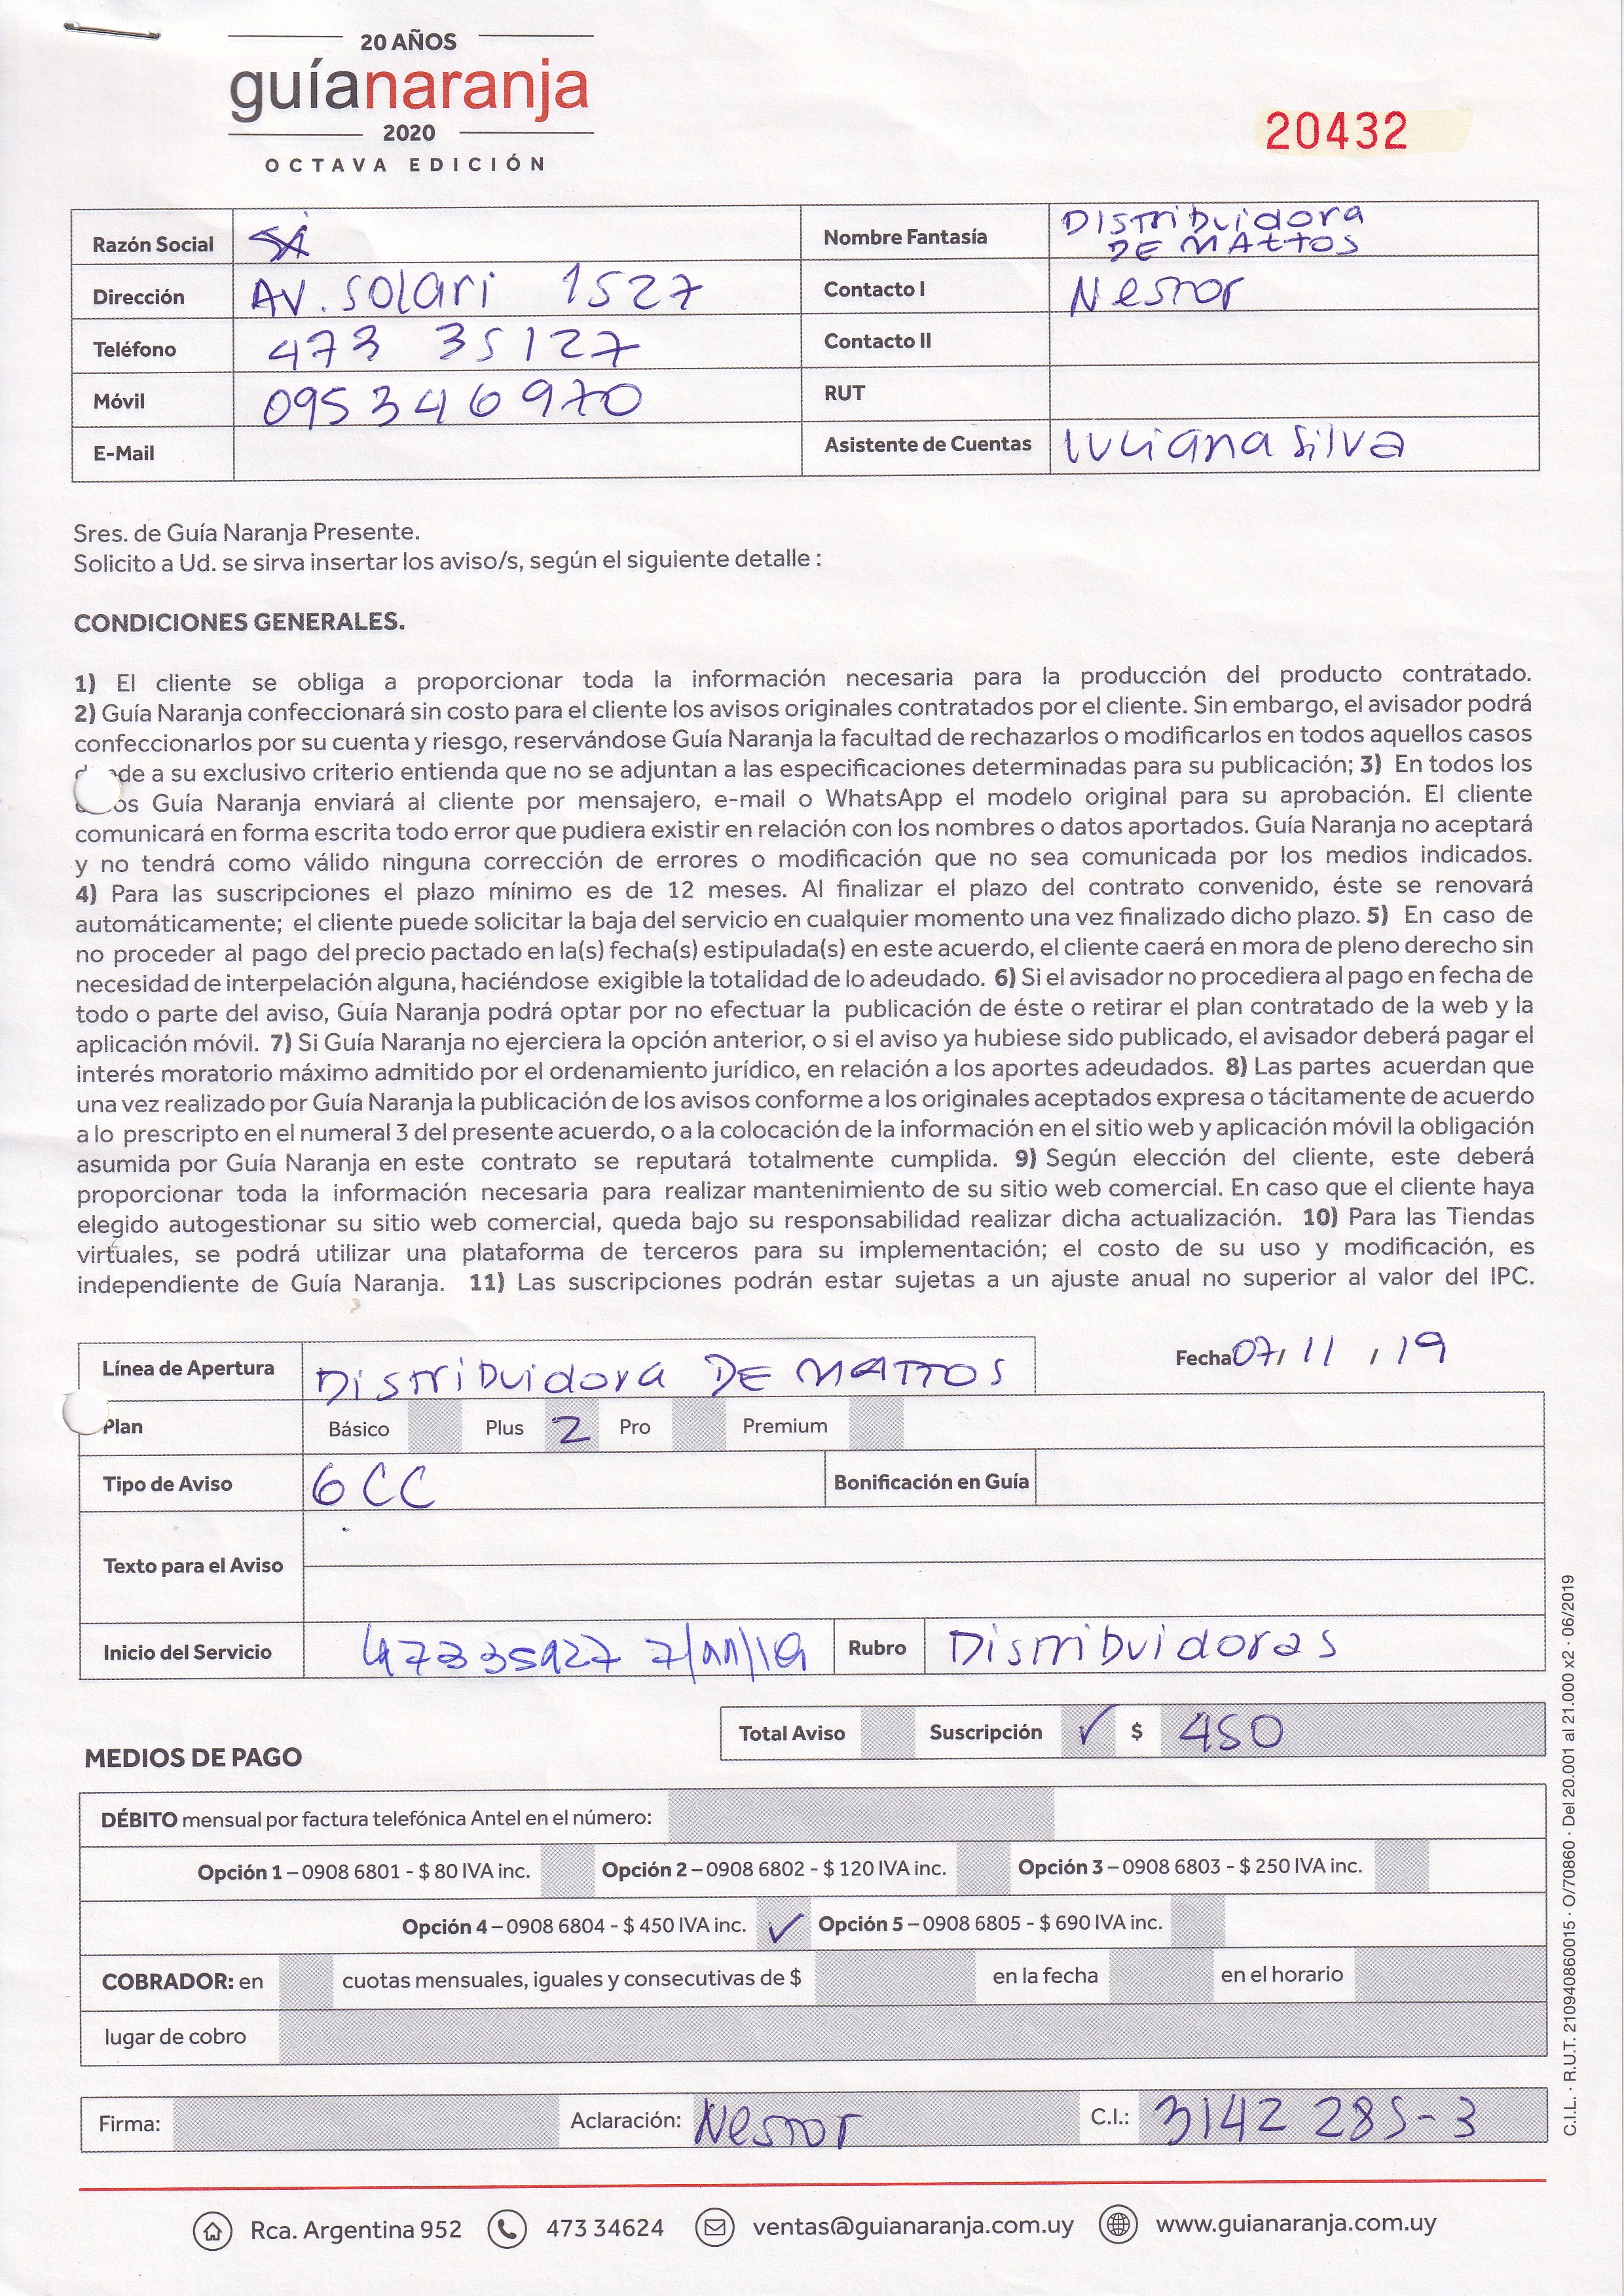 20 AÑOS
guíanaranja
2020
OCTAVA EDICIÓN
20432
Razón Social
Nombre Fantasía Distribuidora DE MATTOS
Dirección AV. Solari 1527 Contacto I Nestor
Teléfono 473 35127 Contacto II
Móvil 095346970 RUT
E-Mail Asistente de Cuentas luciana silva
Sres. de Guía Naranja Presente.
Solicito a Ud. se sirva insertar los aviso/s, según el siguiente detalle :
CONDICIONES GENERALES.
1) El cliente se obliga a proporcionar toda la información necesaria para la producción del producto contratado.
2) Guía Naranja confeccionará sin costo para el cliente los avisos originales contratados por el cliente. Sin embargo, el avisador podrá
confeccionarlos por su cuenta y riesgo, reservándose Guía Naranja la facultad de rechazarlos o modificarlos en todos aquellos casos
a su exclusivo criterio entienda que no se adjuntan a las especificaciones determinadas para su publicación; 3) En todos los
Guía Naranja enviará al cliente por mensajero, e-mail o WhatsApp el modelo original para su aprobación. El cliente
comunicará en forma escrita todo error que pudiera existir en relación con los nombres o datos aportados. Guía Naranja no aceptará
y no tendrá como válido ninguna corrección de errores o modificación que no sea comunicada por los medios indicados.
4) Para las suscripciones el plazo mínimo es de 12 meses. Al finalizar el plazo del contrato convenido, éste se renovará
automáticamente; el cliente puede solicitar la baja del servicio en cualquier momento una vez finalizado dicho plazo. 5) En caso de
no proceder al pago del precio pactado en la(s) fecha(s) estipulada(s) en este acuerdo, el cliente caerá en mora de pleno derecho sin
necesidad de interpelación alguna, haciéndose exigible la totalidad de lo adeudado. 6) Si el avisador no procediera al pago en fecha de
todo o parte del aviso, Guía Naranja podrá optar por no efectuar la publicación de éste o retirar el plan contratado de la web y la
aplicación móvil. 7) Si Guía Naranja no ejerciera la opción anterior, o si el aviso ya hubiese sido publicado, el avisador deberá pagar el
interés moratorio máximo admitido por el ordenamiento jurídico, en relación a los aportes adeudados. 8) Las partes acuerdan que
una vez realizado por Guía Naranja la publicación de los avisos conforme a los originales aceptados expresa o tácitamente de acuerdo
a lo prescripto en el numeral 3 del presente acuerdo, o a la colocación de la información en el sitio web y aplicación móvil la obligación
asumida por Guía Naranja en este contrato se reputará totalmente cumplida. 9) Según elección del cliente, este deberá
proporcionar toda la información necesaria para realizar mantenimiento de su sitio web comercial. En caso que el cliente haya
elegido autogestionar su sitio web comercial, queda bajo su responsabilidad realizar dicha actualización. 10) Para las Tiendas
virtuales, se podrá utilizar una plataforma de terceros para su implementación; el costo de su uso y modificación, es
independiente de Guía Naranja. 11) Las suscripciones podrán estar sujetas a un ajuste anual no superior al valor del IPC.
Línea de Apertura Distribuidora DE MATTOS Fecha 07/ 11 / 19
Plan Básico Plus 2 Pro Premium
Tipo de Aviso 6 CC Bonificación en Guía
Texto para el Aviso
Inicio del Servicio 47335127 7/11/19 Rubro Distribuidoras
Total Aviso Suscripción ✓ $ 450
MEDIOS DE PAGO
DÉBITO mensual por factura telefónica Antel en el número:
Opción 1 – 0908 6801 - $ 80 IVA inc. Opción 2 – 0908 6802 - $ 120 IVA inc. Opción 3 – 0908 6803 - $ 250 IVA inc.
Opción 4 – 0908 6804 - $ 450 IVA inc. ✓ Opción 5 – 0908 6805 - $ 690 IVA inc.
COBRADOR: en cuotas mensuales, iguales y consecutivas de $ en la fecha en el horario
lugar de cobro
Firma: Aclaración: Nestor C.I.: 3142 285-3
Rca. Argentina 952 473 34624 ventas@guianaranja.com.uy www.guianaranja.com.uy
C.I.L. · R.U.T. 210940860015 · O/70860 · Del 20.001 al 21.000 x2 · 06/2019